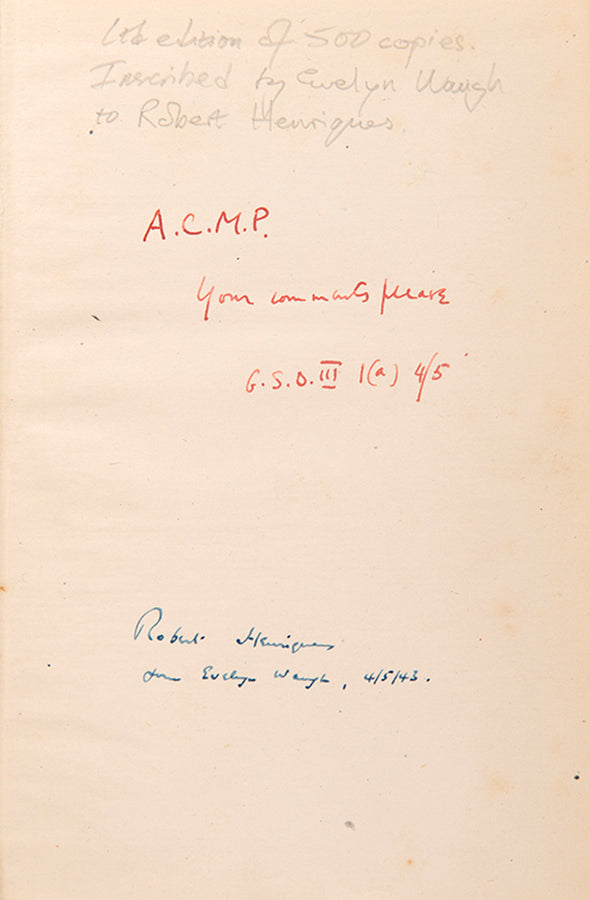 Ltd edition of 500 copies.
Inscribed by Evelyn Waugh
to Robert Henriques
A.C.M.P.
Your comments please
G.S.O. III 1(a) 4/5
Robert Henriques
from Evelyn Waugh, 4/5/43.